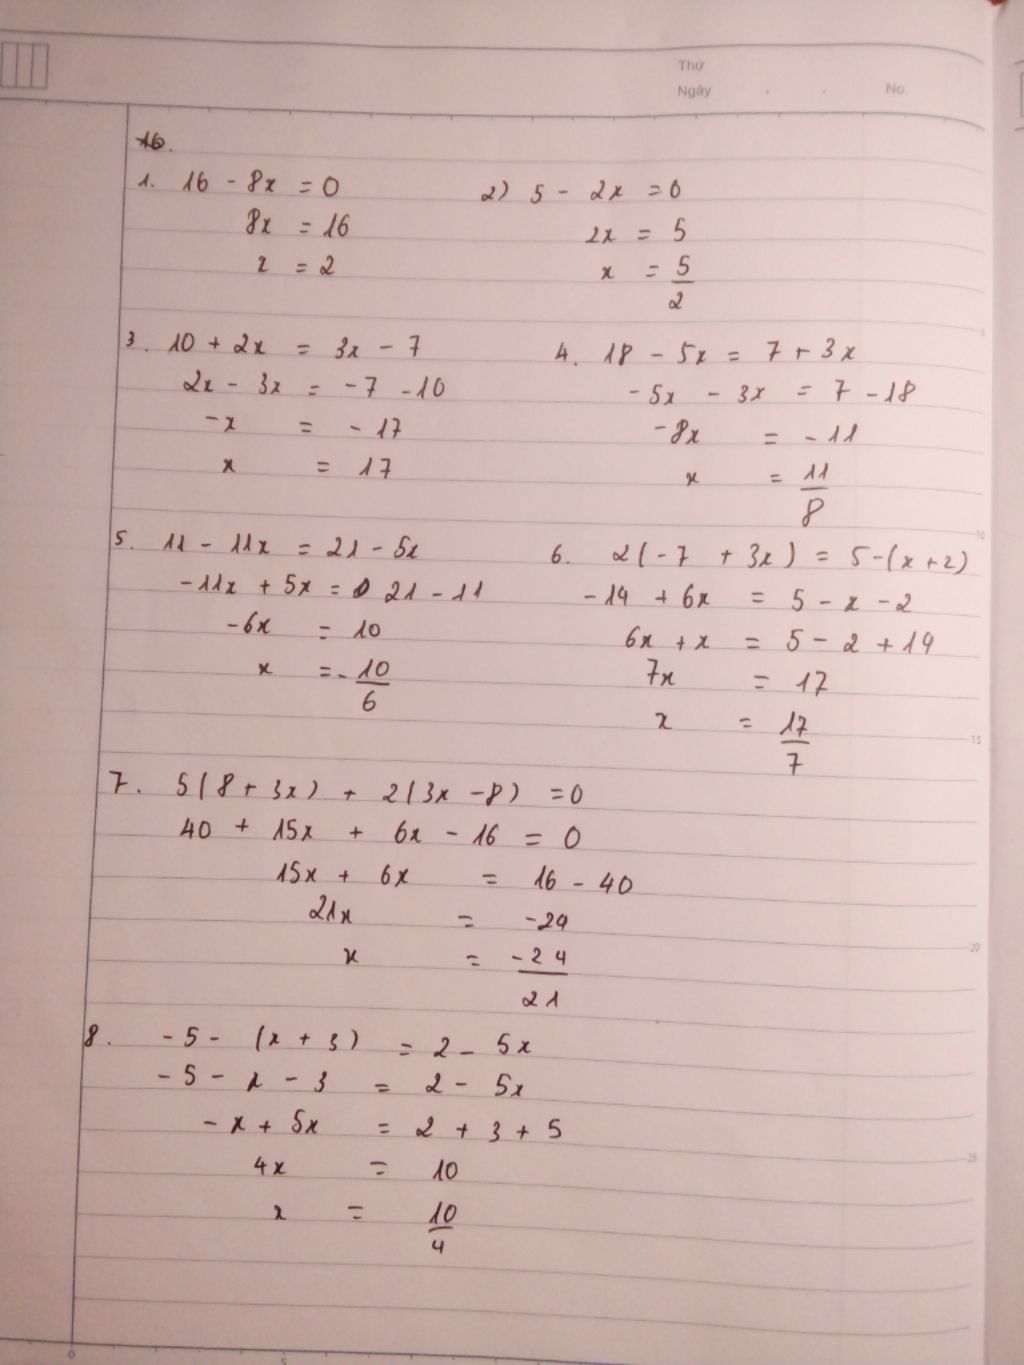 Thứ
Ngày . . No.
16.
1. 16 - 8x = 0
8x = 16
x = 2
2) 5 - 2x = 0
2x = 5
x = 5/2
3. 10 + 2x = 3x - 7
2x - 3x = -7 - 10
-x = -17
x = 17
4. 18 - 5x = 7 + 3x
-5x - 3x = 7 - 18
-8x = -11
x = 11/8
5. 11 - 11x = 21 - 5x
-11x + 5x = 21 - 11
-6x = 10
x = -10/6
6. 2(-7 + 3x) = 5-(x+2)
-14 + 6x = 5 - x - 2
6x + x = 5 - 2 + 14
7x = 17
x = 17/7
7. 5(8 + 3x) + 2(3x - 8) = 0
40 + 15x + 6x - 16 = 0
15x + 6x = 16 - 40
21x = -24
x = -24/21
8. -5 - (x + 3) = 2 - 5x
-5 - x - 3 = 2 - 5x
-x + 5x = 2 + 3 + 5
4x = 10
x = 10/4
5
10
15
20
25
0
5